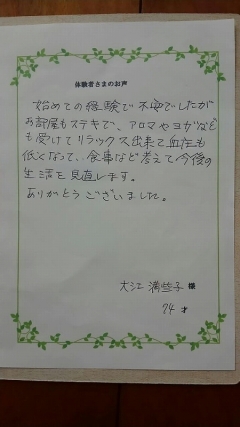 体験者さまのお声
始めての経験で不安でしたが
お部屋もステキで、アロマやヨガなど
も受けてリラックス出来て血圧も
低くなって、食事など考えて今後の
生活を見直します。
ありがとうございました。
大江 満些子 様
74 才